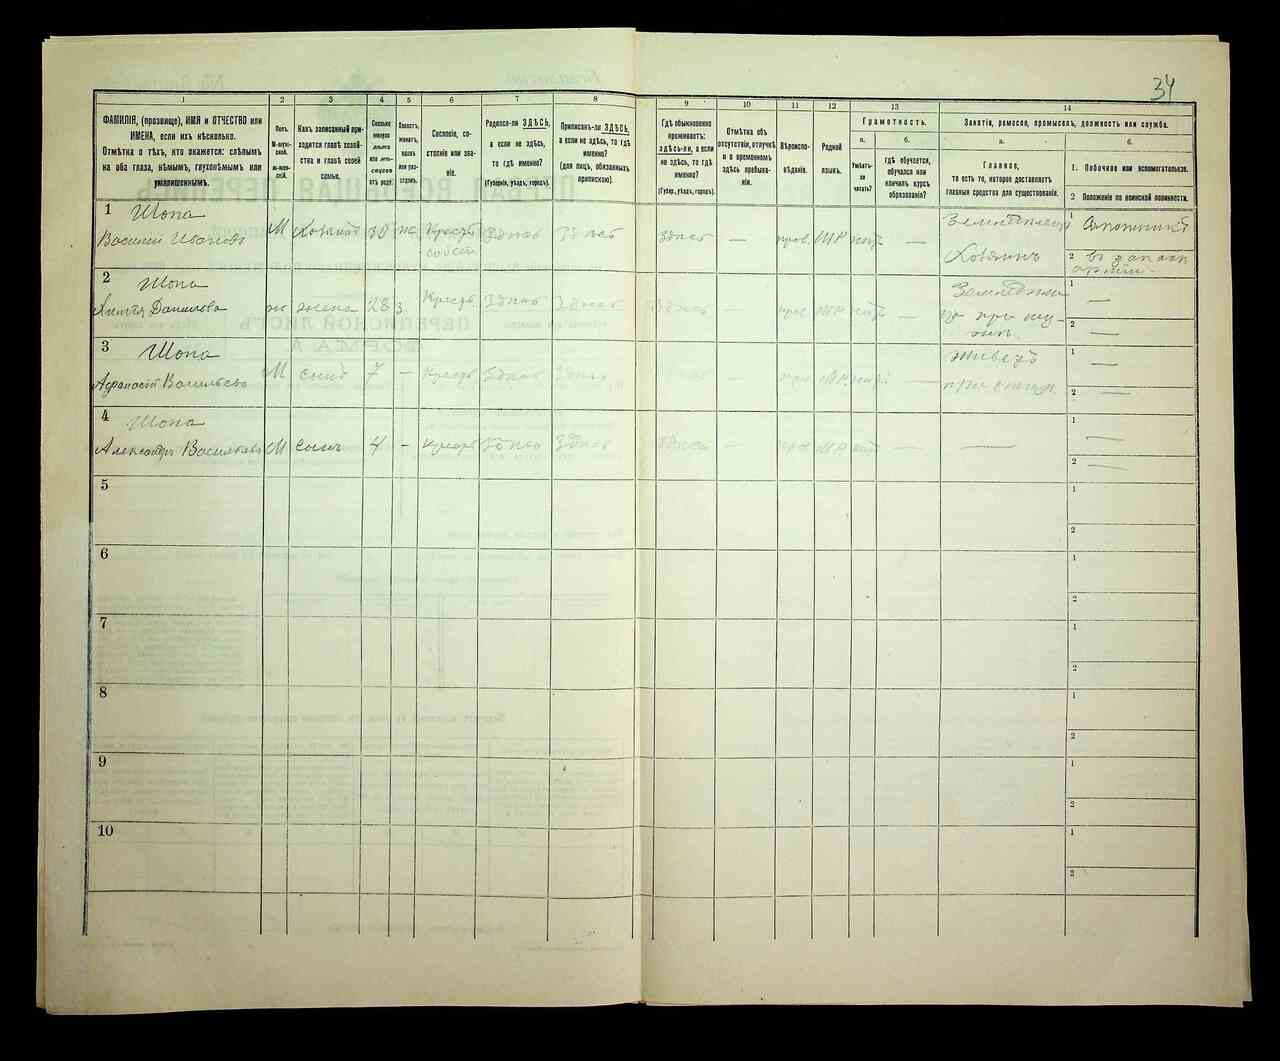 34
1
2
3
4
5
6
7
8
9
10
11
12
13
14
ФАМИЛІЯ, (прозвище), ИМЯ и ОТЧЕСТВО или
ИМЕНА, если ихъ нѣсколько.
Отмѣтка о тѣхъ, кто окажется: слѣпымъ
на оба глаза, нѣмымъ, глухонѣмымъ или
умалишеннымъ.
Полъ.
М-мужской.
Ж-женскій.
Какъ записанный приходится
главѣ хозяйства
и главѣ своей
семьи.
Сколько
минуло
лѣтъ
или мѣсяцевъ
отъ роду.
Холостъ,
женатъ,
вдовъ
или разведенъ.
Сословіе, состояніе
или званіе.
Родился-ли ЗДѢСЬ,
а если не здѣсь,
то гдѣ именно?
(Губернія, уѣздъ, городъ).
Приписанъ-ли ЗДѢСЬ,
а если не здѣсь, то гдѣ
именно?
(Для лицъ, обязанныхъ
припискою).
Гдѣ обыкновенно
проживаетъ:
здѣсь-ли, а если
не здѣсь, то гдѣ
именно?
(Губерн., уѣздъ, городъ).
Отмѣтка объ
отсутствіи, отлучкѣ
и о временномъ
здѣсь пребываніи.
Вѣроисповѣданіе.
Родной
языкъ.
Грамотность.
а.
Умѣетъ-ли
читать?
б.
Гдѣ обучается,
обучался или
кончилъ курсъ
образованія?
Занятіе, ремесло, промыселъ, должность или служба.
а.
Главное,
то есть то, которое доставляетъ
главныя средства для существованія.
б.
1. Побочное или вспомогательное.
2 Положеніе по воинской повинности.
1 Шопа
Василій Ивановъ М Хозяинъ 30 жа Крест. здѣсь здѣсь здѣсь — прав. МР нѣтъ — Земледѣлец
Хозяинъ
1
2 въ запасѣ
арміи
2 Шопа
Данилова ж жена 28 з Крест. здѣсь здѣсь здѣсь — прав. МР нѣтъ —
при мужѣ
1 —
2 —
3 Шопа
Афанасій Васильевъ М сынъ 7 — Крест. здѣсь здѣсь здѣсь — прав. МР нѣтъ — живетъ
при отцѣ
1 —
2 —
4 Шопа
Александръ Васильевъ М сынъ 4 — Крест. здѣсь здѣсь здѣсь — прав. МР нѣтъ — —
1 —
2 —
5
1
2
6
1
2
7
1
2
8
1
2
9
1
2
10
1
2